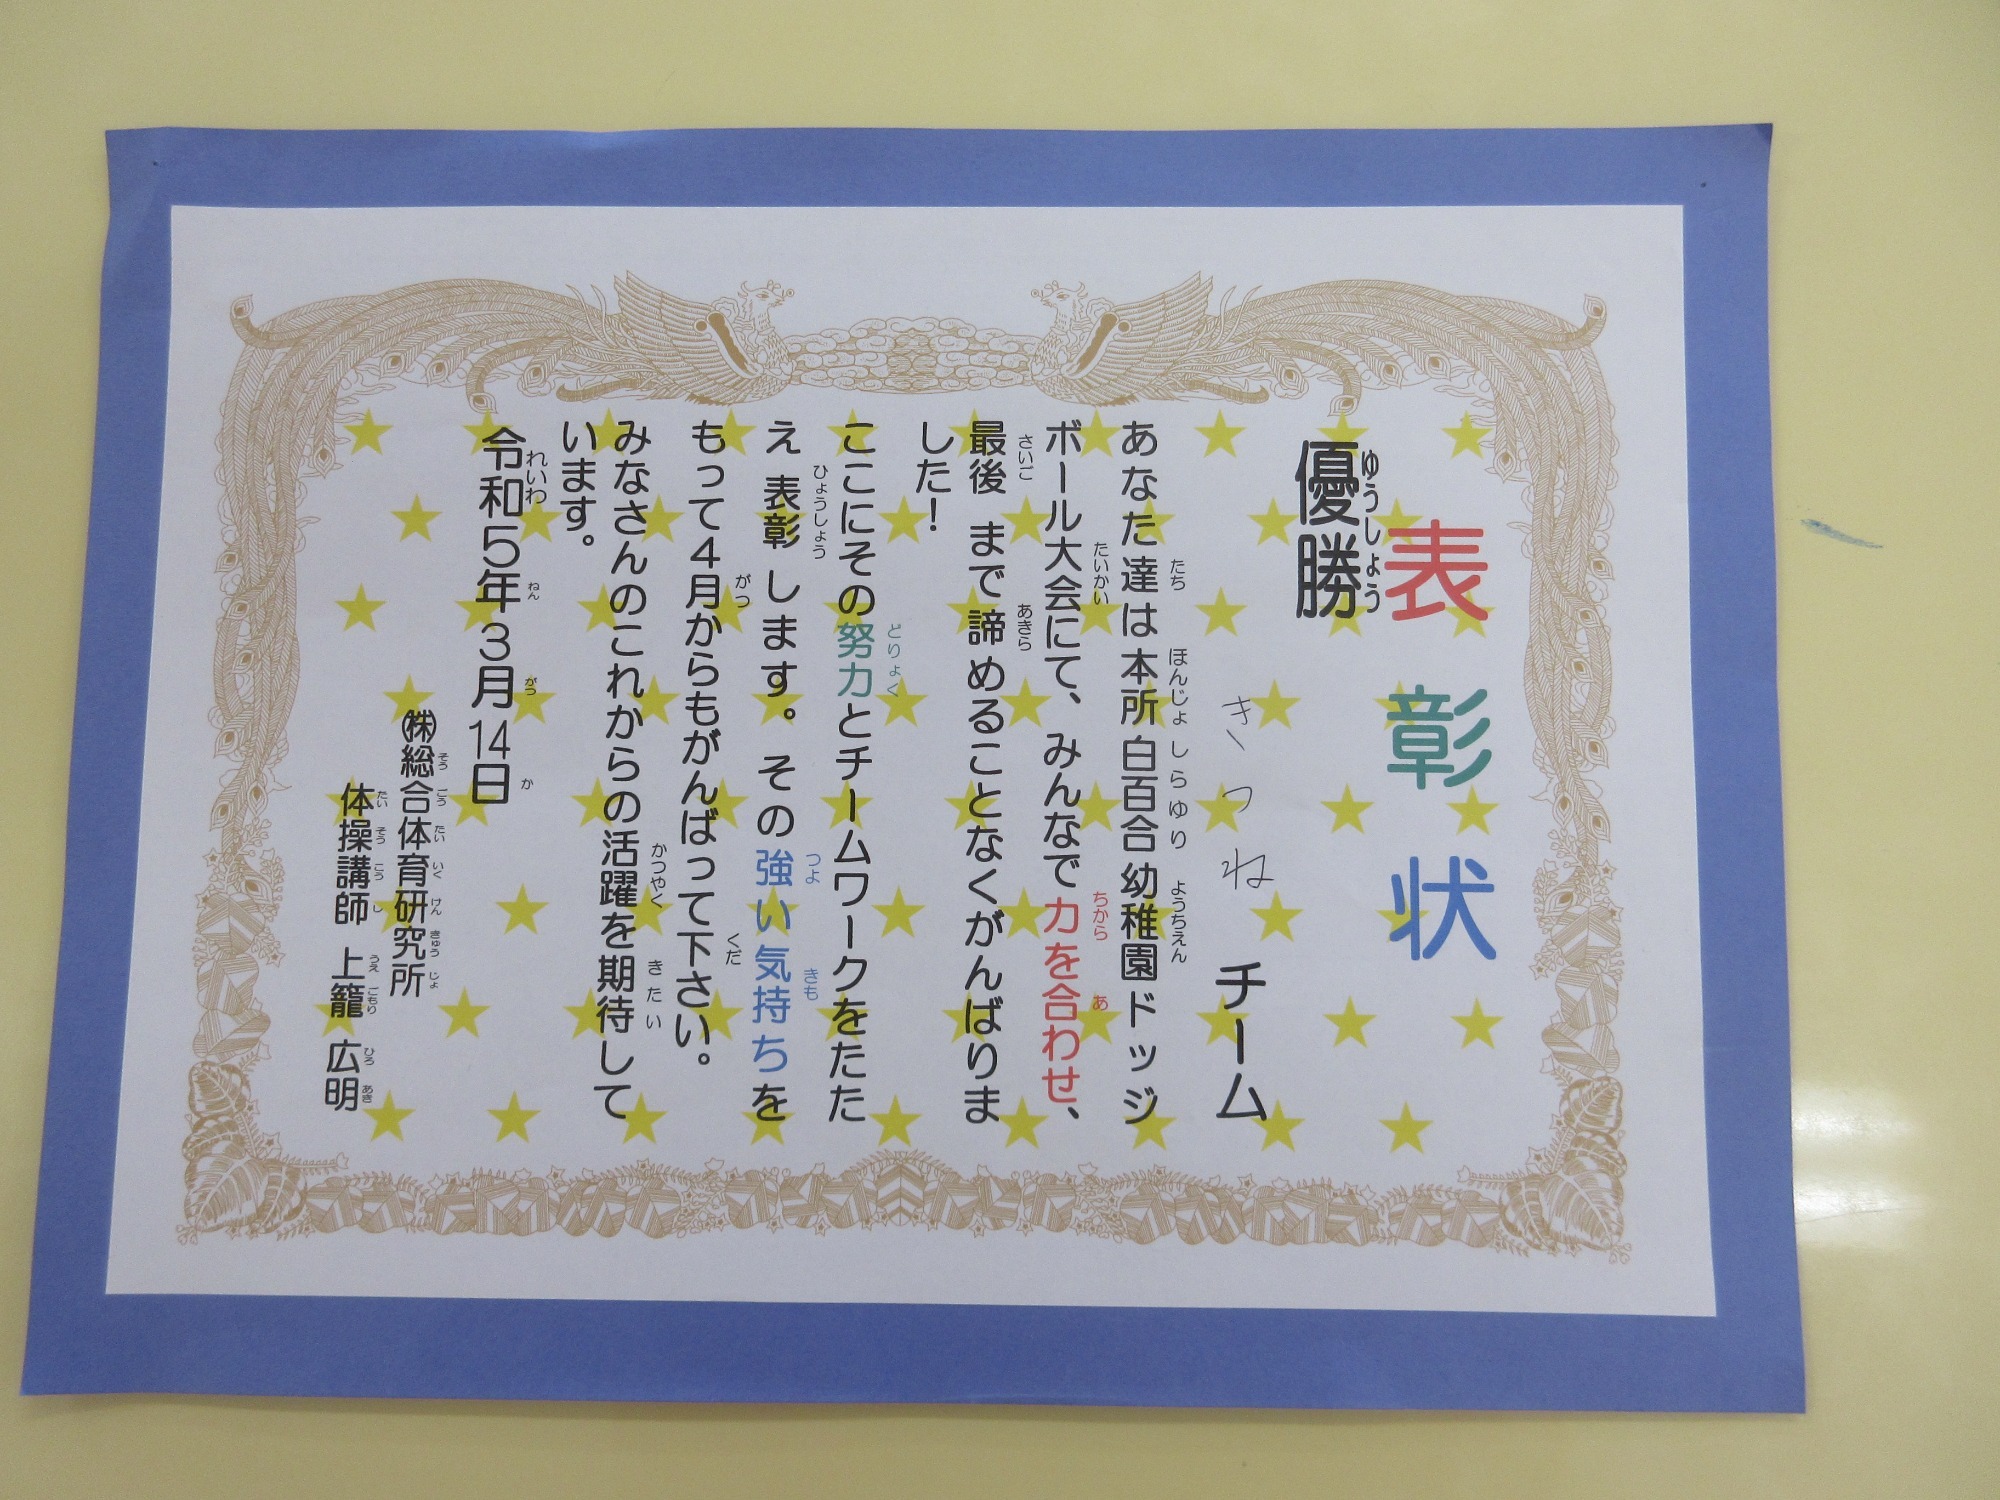 表彰状
優勝
ゆうしょう
きつねチーム
あなた達は本所白百合幼稚園ドッジ
たち ほんじょ しらゆり ようちえん
ボール大会にて、みんなで力を合わせ、
たいかい ちから あ
最後まで諦めることなくがんばりま
さいご あきら
した!
ここにその努力とチームワークをたた
どりょく
え表彰します。その強い気持ちを
ひょうしょう つよ きも
もって4月からもがんばって下さい。
がつ くだ
みなさんのこれからの活躍を期待して
かつやく きたい
います。
令和5年3月14日
れいわ ねん がつ か
㈱総合体育研究所
そう ごう たい いく けん きゅう じょ
体操講師 上籠 広明
たい そう こう し うえ ごもり ひろ あき